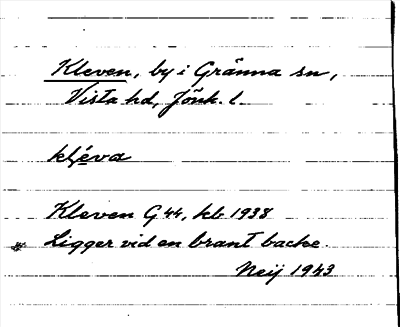 Kleven, by i Gränna sn,
Vista hd, Jönk. l.
Kleven G 44, kb 1938
Ligger vid en brant backe.
Neij 1943